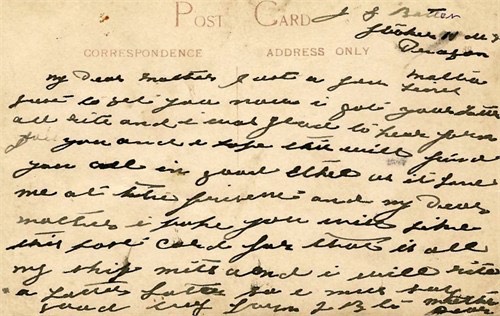 POST CARD
J S Batten
Stoker H M S
Paragon
CORRESPONDENCE
ADDRESS ONLY
Malta
my Dear mother Just a few Lines
Just to let you now i got your Letter
all rite and i was glad to hear from
you and i hope this will find
you all in good as it Leave
me at the present and my Dear
mother i hope you will Like
this post Card for that is all
my ship mits and i will rite
a Letter Latter so i must say
good by from J B to mother
Dear